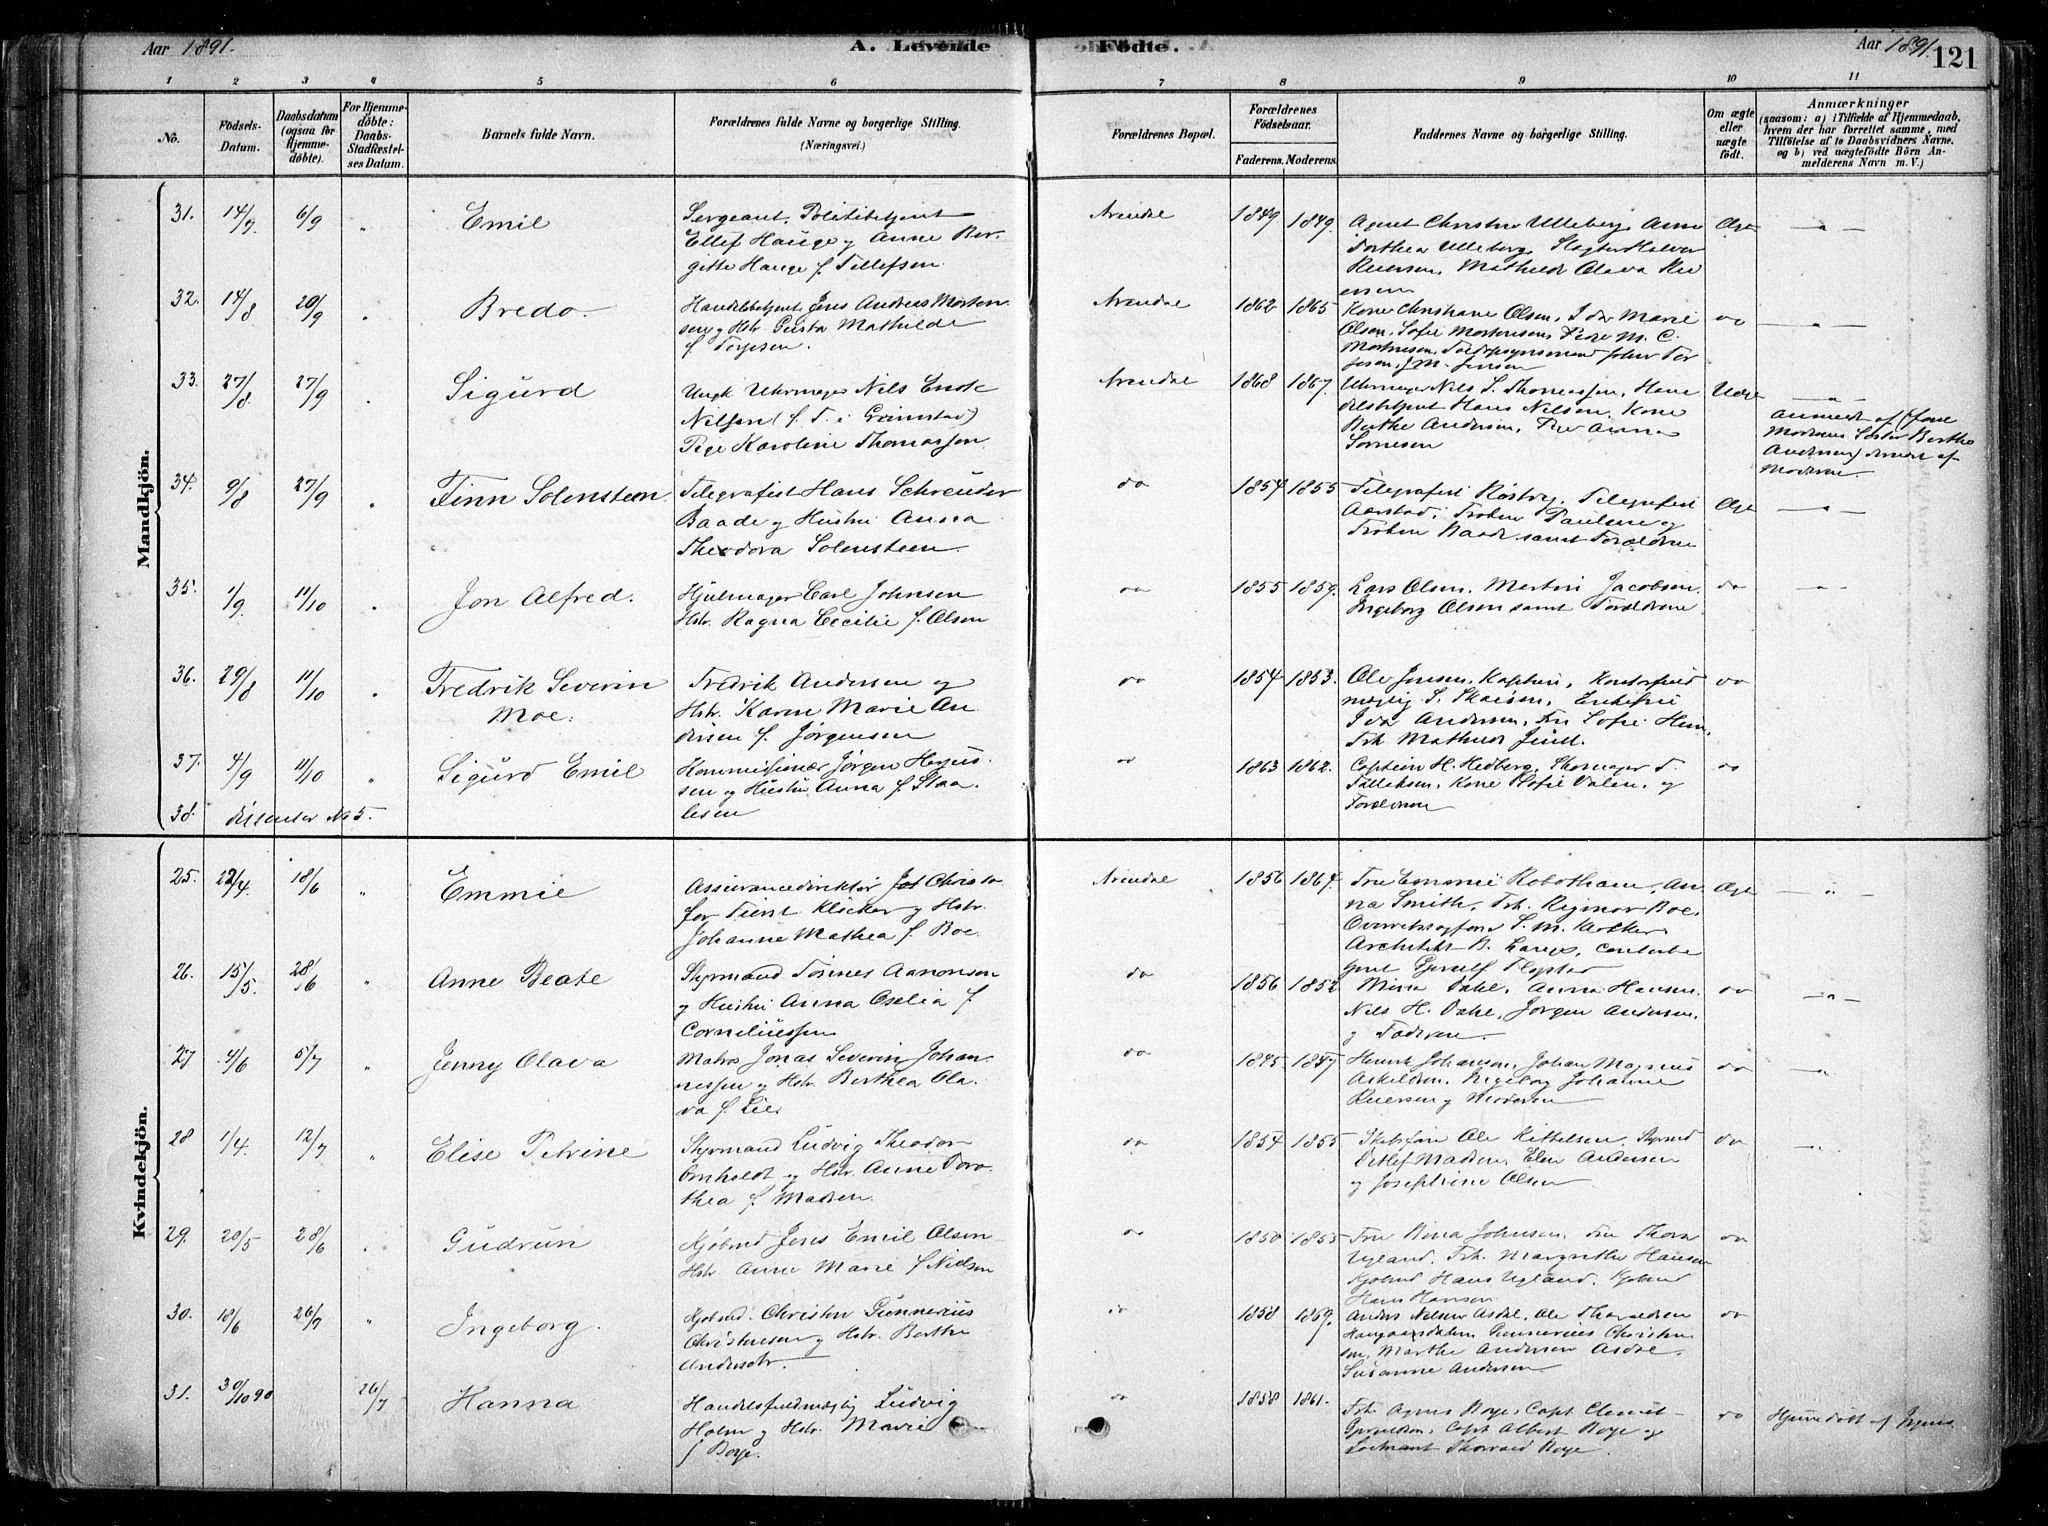 Aar 1891.
A. Levende Födte.
Aar 1891.
121
1 2 3 4 5 6 7 8 9 10 11
No.
Födsels-Datum.
Daabsdatum (ogsaa for Hjemmedöbte).
For Hjemmedöbte: Daabs-Stadfæstelses Datum.
Barnets fulde Navn.
Forældrenes fulde Navne og borgerlige Stilling.
(Næringsvei.)
Forældrenes Bopæl.
Forældrenes Födselsaar.
Faderens. Moderens.
Faddernes Navne og borgerlige Stilling.
Om ægte eller uægte födt.
Anmærkninger
(saasom: a) i Tilfælde af Hjemmedaab,
hvem der har forrettet samme, med
Tilföielse af to Daabsvidners Navne,
og b) ved uægtefödte Börn Anmelderens Navn m. V.)
Mandkjön.
31. 14/7 6/9 " Emil
Sergeant, Politibetjent
Ellef Hauge og Anne Ber-
gitte Hauge f. Tellefsen
Arendal 1849 1849.
Agent Christen Ulleberg, Anne
Dorthea Ulleberg, Slagter Halvor
Reiersen, Mathilde Olava Rei
ersen
Ægte — " —
32. 14/8 20/9 " Bredo.
Handelsbetjent Jens Andreas Morten
sen og Hst. Mathilde
f. Torjesen.
Arendal 1862 1865
Kone Christiane Olsen, Ida Marie
Olsen, Sofie Mortensen, M. C.
Mortensen, John Tor
jesen, J. M. Jensen
do — " —
33. 27/8 27/9 " Sigurd
Ungk. Uhrmager Nils Enok
Nilsen (f. T. i Grimstad)
Pige Karoline Thomassen
Arendal 1868 1867
Uhrmager Nils S. Thomassen, Han
delsbetjent Hans Nilsen, Kone
Berthe Andersen, Anna
Sørensen
Uægte — " —
Anmeldt af
Moderens Søster Berthe
Andersen
Moderen.
34. 9/8 27/9 " Finn Solensteen.
Telegrafist Hans Schreuder
Baade og Hustru Anna
Theodora Solensteen.
do 1854 1855
Telegrafist Telegrafist
Aarstad, Frøken Paulsen og
Frøken Baade samt Forældrene
Ægte — " —
35. 1/9 11/10 " Jon Alfred.
Hjulmager Carl Johnsen
Hstr. Ragna Cecilie f. Olsen
do 1855 1859.
Lars Olsen, Martin Jacobsen,
Ingeborg Olsen samt Forældrene
do — " —
36. 29/8 11/10 " Fredrik Severin
Moe.
Fredrik Andersen og
Hstr. Karen Marie An
dersen f. Jørgensen
do 1854 1853.
Ole Jensen, Kaptein, Kontorfuld
mægtig S. Enkefru
Ida Andersen, Fru Sofie
Frk. Mathilde
do
37. 4/9 11/10 " Sigurd Emil
Kommissionær Jørgen
sen og Hustru Anna f. Staa-
lesen
do 1863 1862.
Captein H. Hedberg, Skomager T.
Tellefsen, Kone Sofie Dalen, og
Forældrene
do
38. dissenter No 5.
Kvindekjön.
25. 22/4. 18/6 " Emmie
Assurancedirektør Christo
for Klöcker og Hstr.
Johanne Mathea f. Boe.
Arendal 1856 1864.
Fru Emmie Robotham, An
na Smith, Frk. Rigmor Boe,
Overretssagfører
Architekt B. Lange,
Ægte — " —
26. 15/5. 28/6 " Anne Beate
Styrmand Tønnes Aanonsen
og Hustru Anna Oselia f.
Corneliussen
do 1856 1852
Mina Dahl, Anna Hansen,
Nils H. Dahl, Jørgen Andersen,
og Faderen.
do — " —
27 4/6 5/7 " Jenny Olava
Matros Jonas Severin Johan-
nessen og Hstr. Berthea Ola-
va f. Lie
do 1845 1847
Henrik Johansen, Johan Magnus
Askeldsen, Ingeborg Johanne
Reiersen og Moderen
do — "
28 1/4. 12/7 " Elise Petrine
Styrmand Ludvig Theodor
Omholdt og Hstr. Anne Doro-
thea f. Madsen.
do 1854 1855
Ole Kittelsen,
Detlef Madsen, Elen Andersen
og Josephine Olsen
do — "
29. 20/5 28/6 " Gudrun
Kjøbmd Jens Emil Olsen
Hstr. Anne Marie f. Nielsen
do 1850 1853
Fru Johnsen, Fru Thora
Ugland, Frk. Margrethe Hansen
Kjøbmd Hans Ugland, Kjøbmd
Hans Hansen
do
30. 18/6 26/7 " Ingeborg.
Kjøbmd. Christen Gunnerius
Christensen og Hstr. Berthe
Andersdtr.
do 1858 1869.
Anders Nelsen Asdal, Ole Tharaldsen
Haugaasdalen, Gunnerius Christen
sen, Marthe Andersen Asdal,
Susanne Andersen
do
31. 30/10 90 26/7 Hanna
Handelsfuldmægtig Ludvig
Holm og Hstr. Marie
f. Boye.
do 1858 1861.
Frk. Agnes Boye, Capt.
Capt Albert Boye og
Thorvald Boye
do Hjemmedøbt af